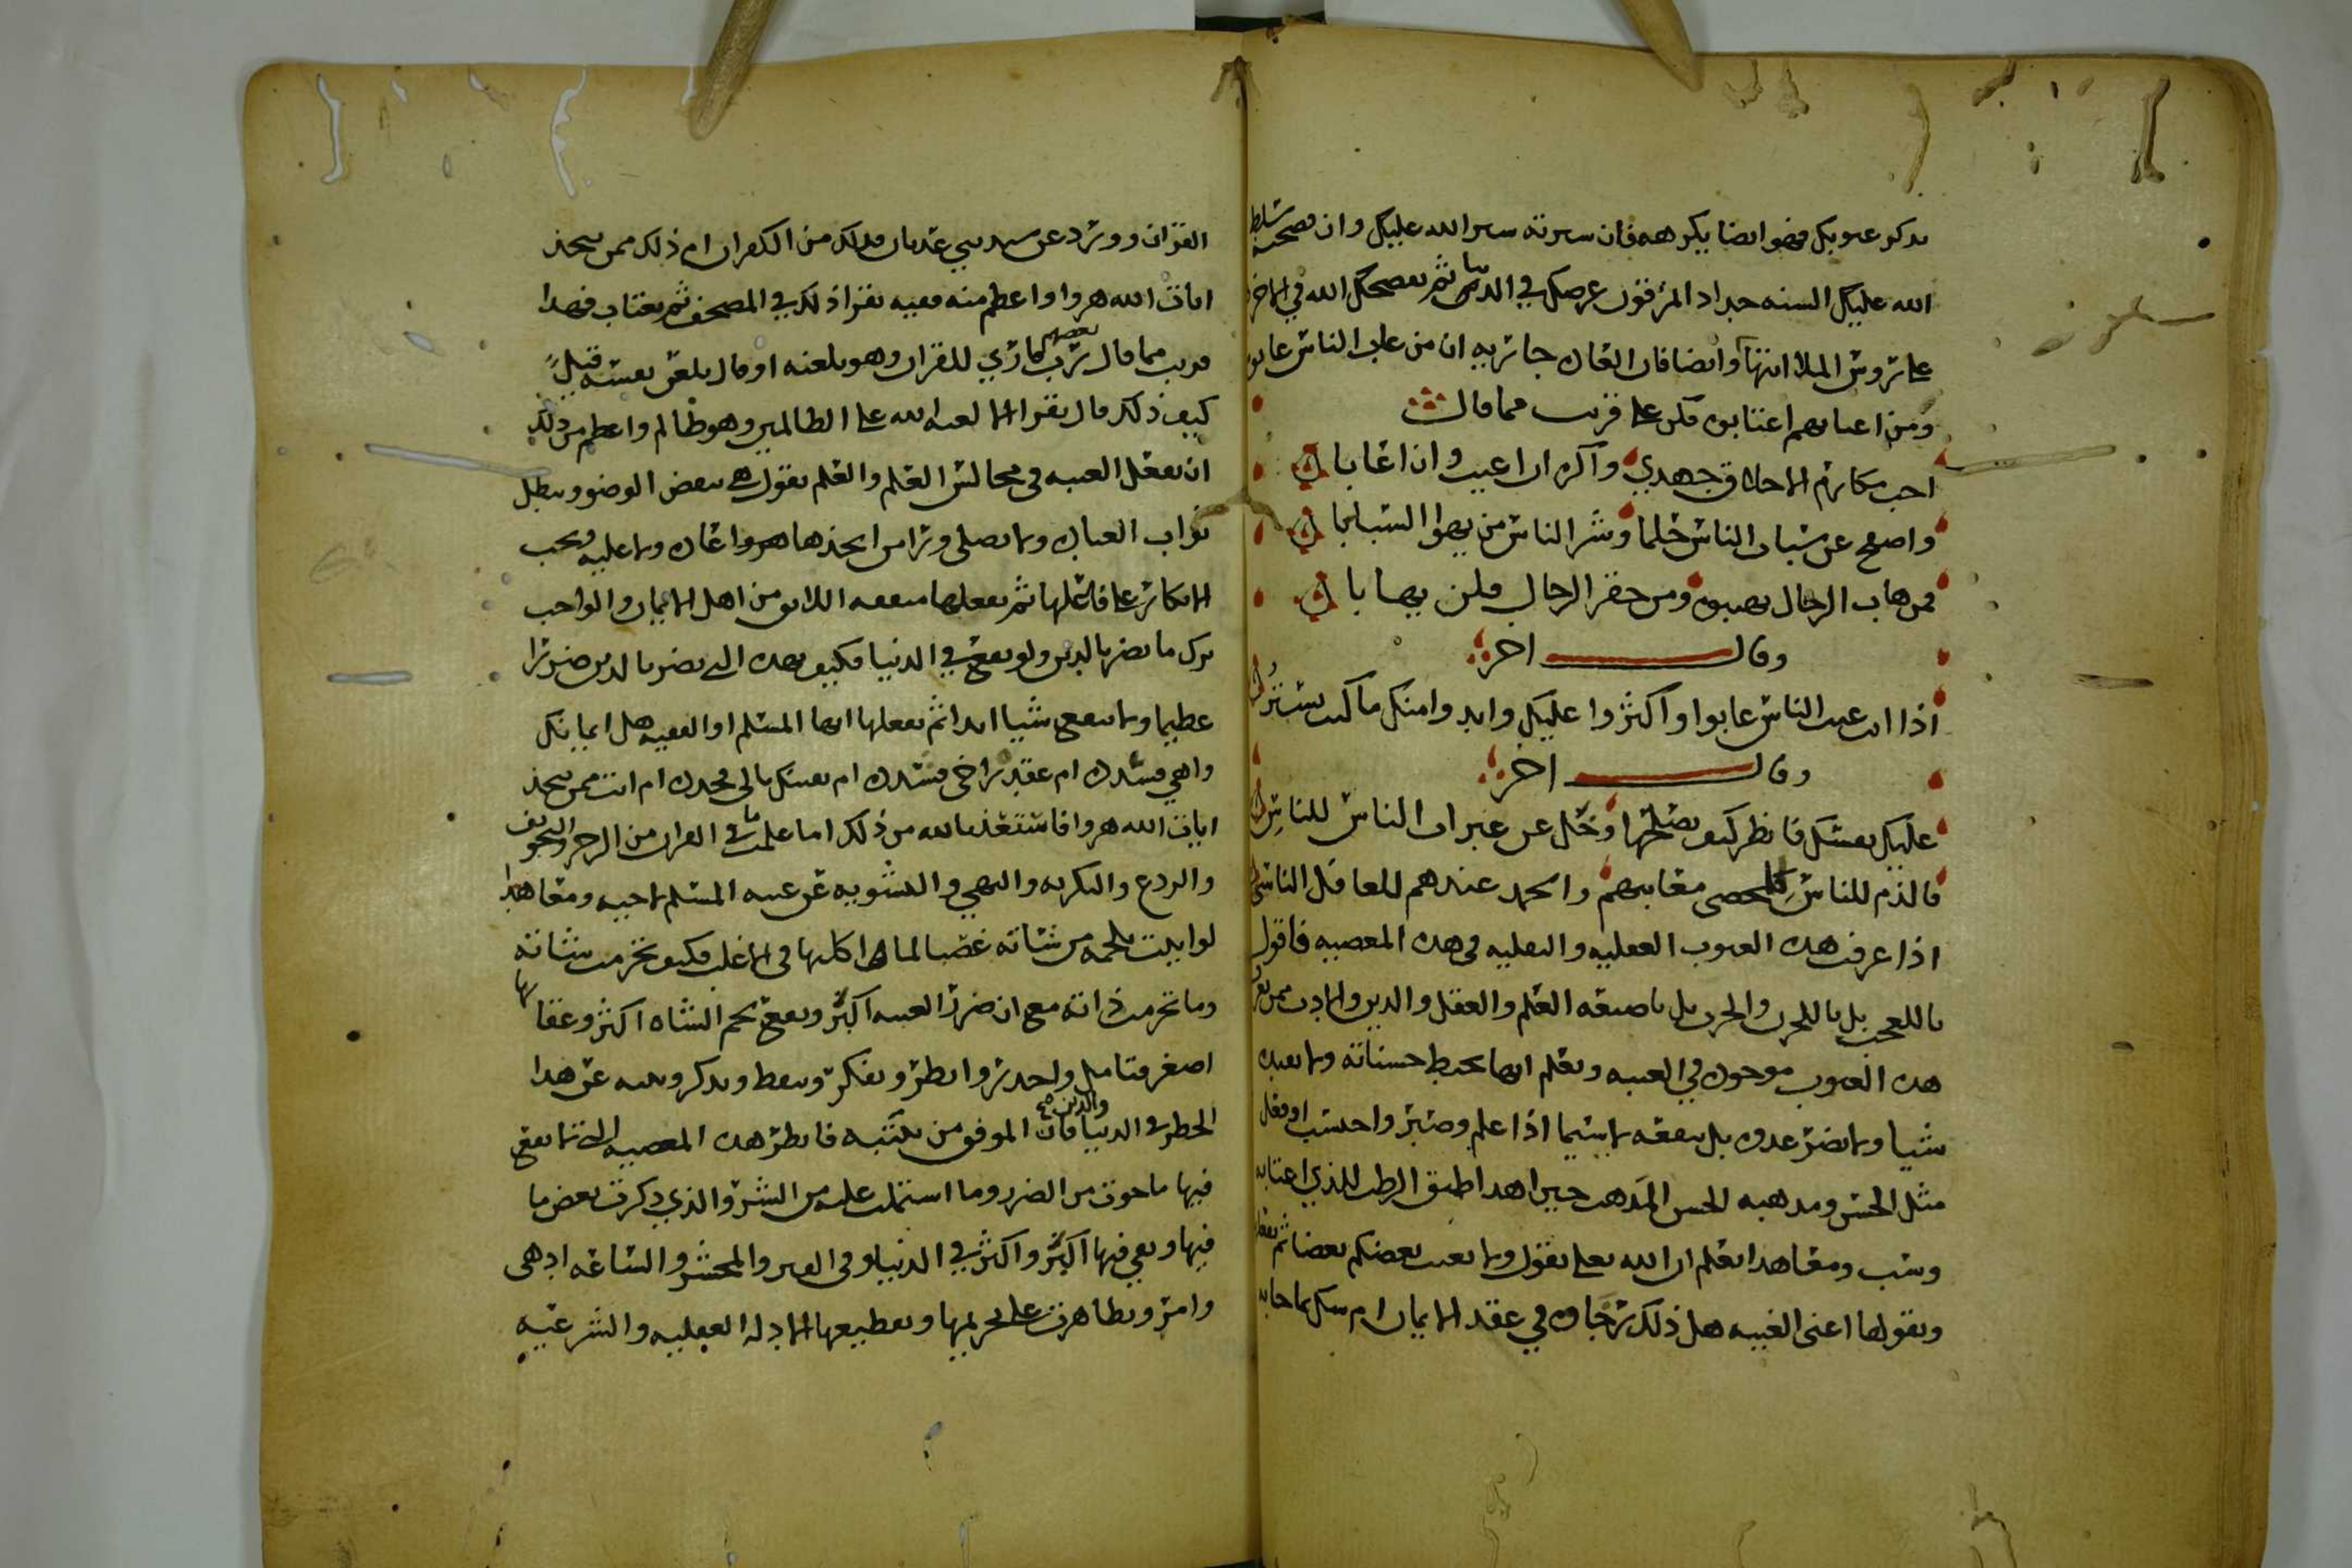 بذكر عيوبك فهو ايضا يكرهه فان سترته ستر الله عليك وان فضحته سلط
الله عليك السنه حداد المزقون عرضك في الدنيا ثم يفضحك الله في الاخره
على روس الملا انتها وايضا فان العاده جاريه ان من عاب الناس عابوه
ومن اغتابهم اغتابوه فكن على قرب مما قال
احب مكارم الاخلاق جهدي واكره ان اعيب وان اعابا
واصفح عن سباب الناس حلما وشر الناس من يهوا السبابا
فمن هاب الرجال تهيبوه ومن حقر الرجال فلن يهابا
وقال اخر
اذا انت عبت الناس عابوا واكثروا عليك وابدوا منك ما كنت تستر
وقال اخر
عليك نفسك فانظر كيف تصلحها وخل عن عثرات الناس للناس
فالذم للناس للمحصي معايبهم والحمد عندهم للعاقل الناسي
اذا عرفت هذه العيوب العقليه والنقليه في هذه المعصيه فاقول
ياللعجب بل ياللحزن والحرب بل ياضيعه العلم والعقل والدين والادب ممن يعرف
هذه العيوب موجوده في الغيبه ويعلم انها تحبط حسناته ولا تفيده
شيا ولا تضر عدوه بل تنفعه لاسيما اذا علم وصبر واحتسب او فعل
مثل الحسن ومذهبه الحسن المذهب حين اهدا طبق الرطب للذي اغتابه
وسب ومع هذا يعلم ان الله تعلى يقول ولا يغتب بعضكم بعضا ثم يفعلها
ويقولها اعني الغيبه هل ذلك رخاوه في عقد الايمان ام شك بما جا به
القران وورد عن سيد بني عدنان فذلك من الكفران ام ذلك ممن يتخذ
ايات الله هزوا واعظم منه فقيه يقرا ذلك في المصحف ثم يغتاب فهذا
قريب مما قال بعضهم رب قاري للقران وهو يلعنه او قال يلعن نفسه قيل
كيف ذلك قال يقرا الا لعنه الله على الظالمين وهو ظالم واعظم من ذلك
ان يفعل الغيبه في مجالس العلم والعلم يقول هي تنقض الوضو وتبطل
ثواب العباده ولا يصلي ورا من اتخذها هزوا عاده ولا عليه ويجب
الانكار على فاعلها ثم يفعلها متفقه اللايق من اهل الايمان والواجب
ترك ما يضر بالدين ولو نفع في الدنيا فكيف بهذه التي تضر بالدين ضررا
عظيما ولا تنفع شيا ابدا ثم يفعلها ايها المسلم او الفقيه هل ايمانك
واهي فشده ام عقد تراخى فشده ام نفسك بالي فجدده ام انت ممن يتخذ
ايات الله هزوا فاستعذ بالله من ذلك اما علمت ما في القران من الزجر والتخويف
والردع والتكريه والنهي والتشويه عن غيبه المسلم لاخيه ومع هذا
لو ابيت بلحمه من شاته غصبا لما اكلها في الاغلب فكيف تحرمت شاته
وما تحرمت ذاته مع ان ضرر الغيبه اكبر ونفع لحم الشاه اكثر وعقابها
اصغر فتامل واحذر وانظر وتفكر وتيقظ وتذكر وتنبه عن هذا
الخطر في الدنيا والدين فان الموفق من يتنبه فانظر هذه المعصيه التي لا نفع
فيها ما حوت من الضرر وما اشتملت عليه من الشر والذي ذكرت بعض ما
فيها وبقي فيها اكبر واكثر في الدنيا وفي القبر والمحشر والساعه ادهى
وامر وتظاهرت على تحريمها وتفظيعها الادله العقليه والشرعيه